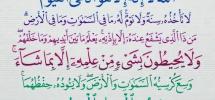 لَا تَأْخُذُهُ سِنَةٌ وَلَا نَوْمٌ لَهُ مَا فِي السَّمَوَاتِ وَمَا فِي الْأَرْضِ
مَنْ ذَا الَّذِي يَشْفَعُ عِنْدَهُ إِلَّا بِإِذْنِهِ يَعْلَمُ مَا بَيْنَ أَيْدِيهِمْ وَمَا خَلْفَهُمْ
وَلَا يُحِيطُونَ بِشَيْءٍ مِنْ عِلْمِهِ إِلَّا بِمَا شَاءَ
وَسِعَ كُرْسِيُّهُ السَّمَوَاتِ وَالْأَرْضَ وَلَا يَئُودُهُ حِفْظُهُمَا